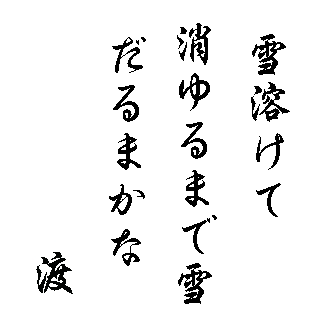 雪溶けて
消ゆるまで雪
だるまかな
渡